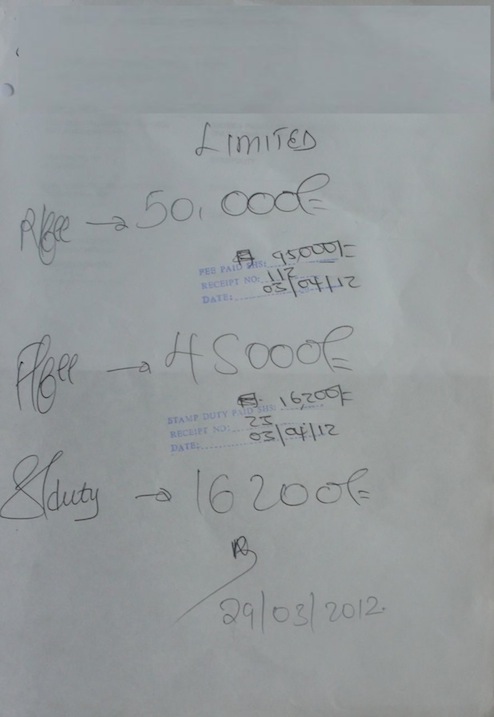 LIMITED
R/fee → 50,000/=
95000/=
FEE PAID SHS:
RECEIPT NO: 112
DATE: 03/04/12
F/fee → 45000/=
16,200/=
STAMP DUTY PAID SHS:
RECEIPT NO: 25
DATE: 03/04/12
S/duty → 16200/=
29/03/2012.